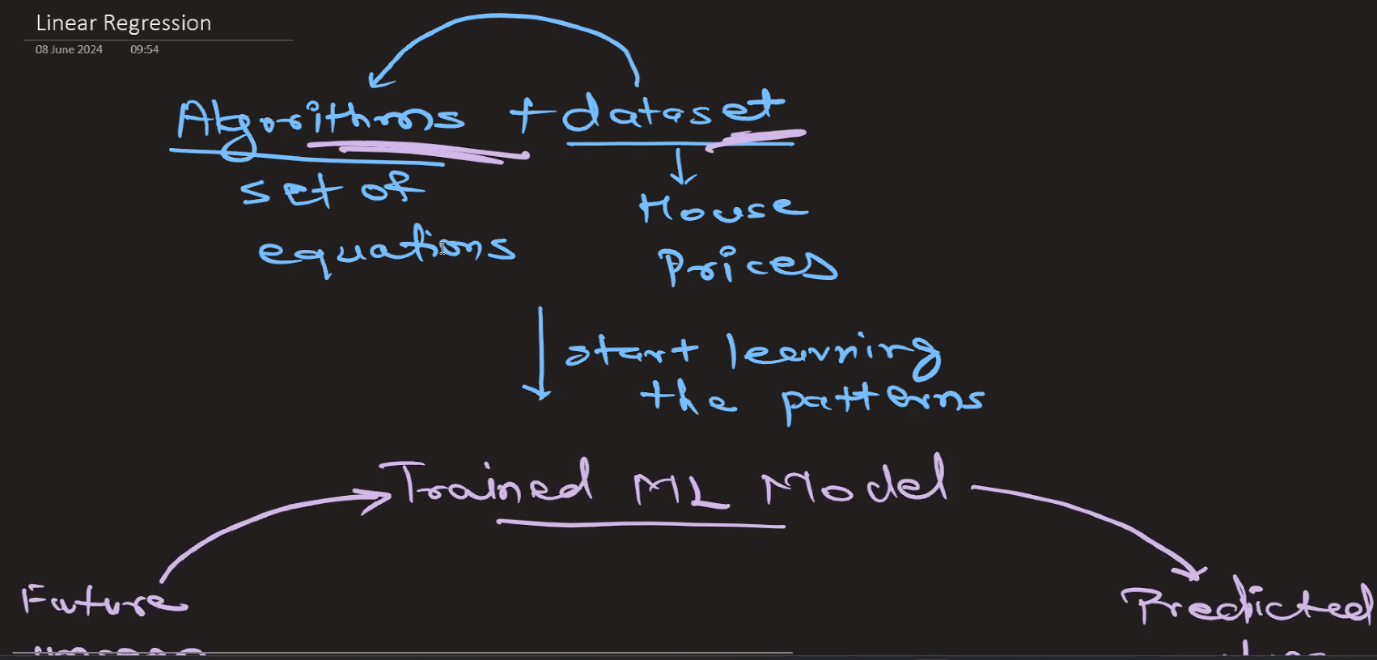 Linear Regression
08 June 2024 09:54
Algorithms + dataset
set of
equations
House
Prices
start learning
the patterns
Trained ML Model
Future
Predicted